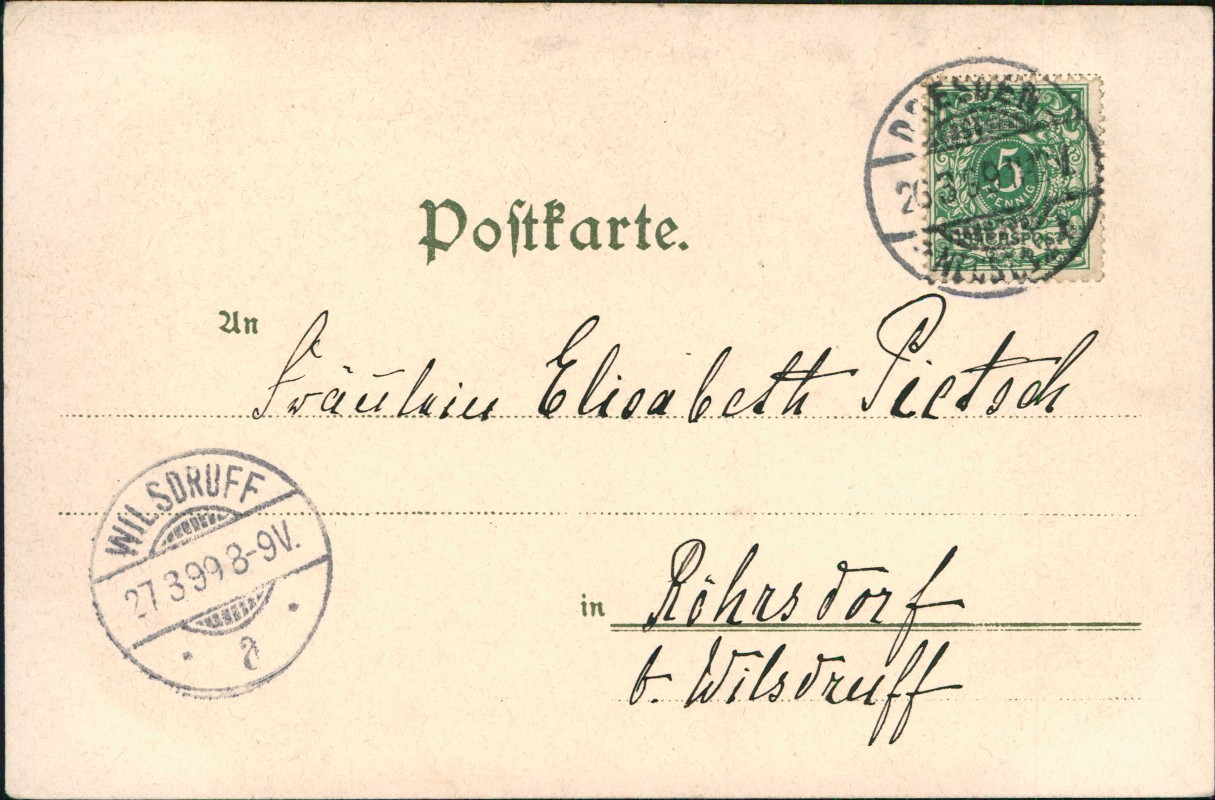 DRESDEN
26 3 99
5
PFENNIG
REICHSPOST
Postkarte.
An
Fräulein Elisabeth Pietsch
WILSDRUFF
27 3 99 8-9V.
a
in Röhrsdorf
b. Wilsdruff